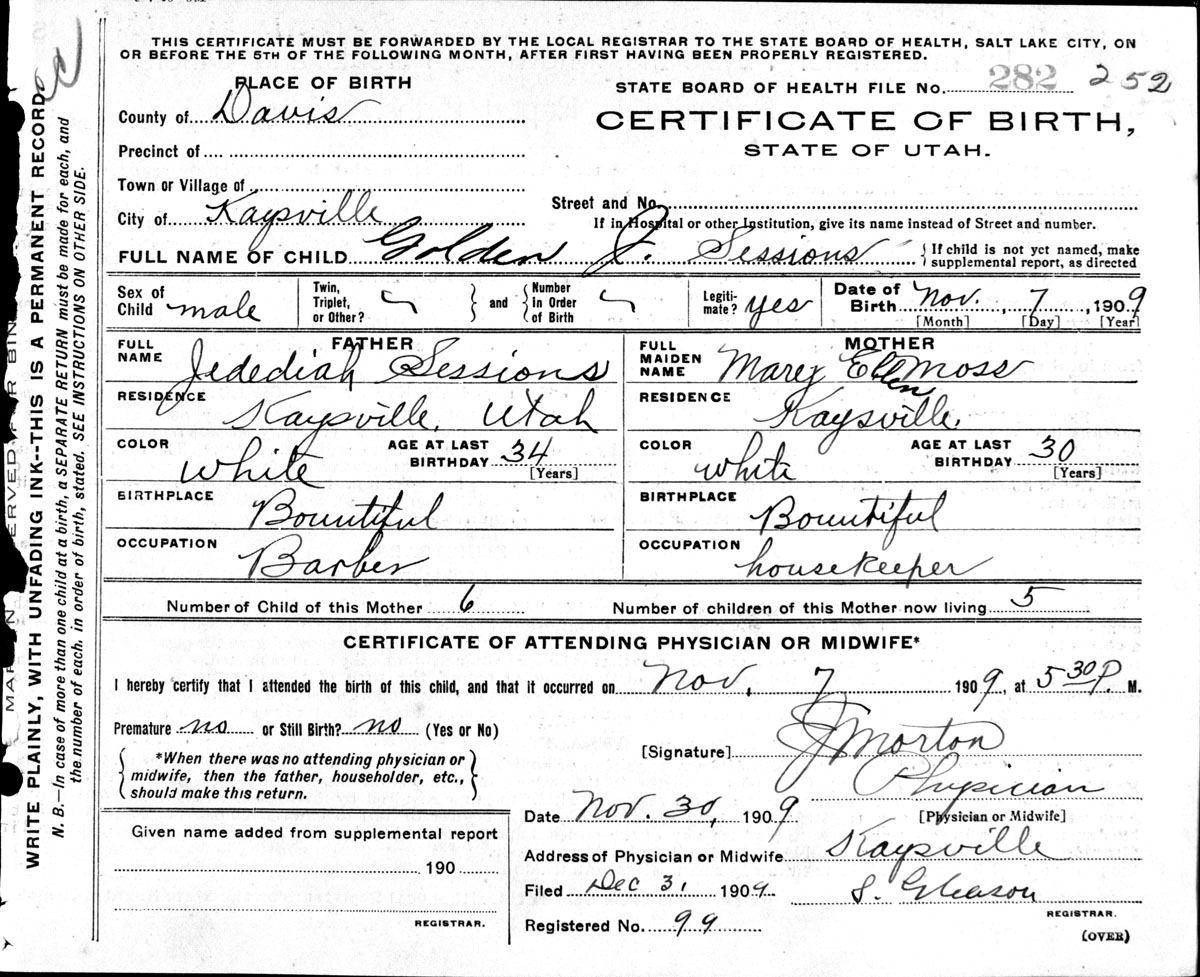 THIS CERTIFICATE MUST BE FORWARDED BY THE LOCAL REGISTRAR TO THE STATE BOARD OF HEALTH, SALT LAKE CITY, ON
OR BEFORE THE 5TH OF THE FOLLOWING MONTH, AFTER FIRST HAVING BEEN PROPERLY REGISTERED.
PLACE OF BIRTH
STATE BOARD OF HEALTH FILE No. 282 252
County of Davis
CERTIFICATE OF BIRTH,
STATE OF UTAH.
Precinct of
Town or Village of
Street and No.
City of Kaysville
If in Hospital or other Institution, give its name instead of Street and number.
FULL NAME OF CHILD Golden J. Sessions {If child is not yet named, make
supplemental report, as directed
Sex of Child male
Twin, Triplet, or Other? } and { Number in Order of Birth
Legiti-mate? yes
Date of Birth Nov. 7, 1909
[Month] [Day] [Year]
FATHER
FULL NAME Jedediah Sessions
RESIDENCE Kaysville, Utah
COLOR white AGE AT LAST BIRTHDAY 34
[Years]
BIRTHPLACE Bountiful
OCCUPATION Barber
MOTHER
FULL MAIDEN NAME Mary Ellen Moss
RESIDENCE Kaysville.
COLOR white AGE AT LAST BIRTHDAY 30
[Years]
BIRTHPLACE Bountiful
OCCUPATION housekeeper
Number of Child of this Mother 6 Number of children of this Mother now living 5
CERTIFICATE OF ATTENDING PHYSICIAN OR MIDWIFE*
I hereby certify that I attended the birth of this child, and that it occurred on Nov. 7 1909, at 5 30 P. M.
Premature no or Still Birth? no (Yes or No)
[Signature] J Morton
*When there was no attending physician or
midwife, then the father, householder, etc.,
should make this return.
Physician
[Physician or Midwife]
Date Nov. 30, 1909
Given name added from supplemental report
190
REGISTRAR.
Address of Physician or Midwife Kaysville
Filed Dec 31 1909 S. Gleason
REGISTRAR.
Registered No. 99
(OVER)
WRITE PLAINLY, WITH UNFADING INK--THIS IS A PERMANENT RECORD
N. B.—In case of more than one child at a birth, a SEPARATE RETURN must be made for each, and
the number of each, in order of birth, stated. SEE INSTRUCTIONS ON OTHER SIDE.